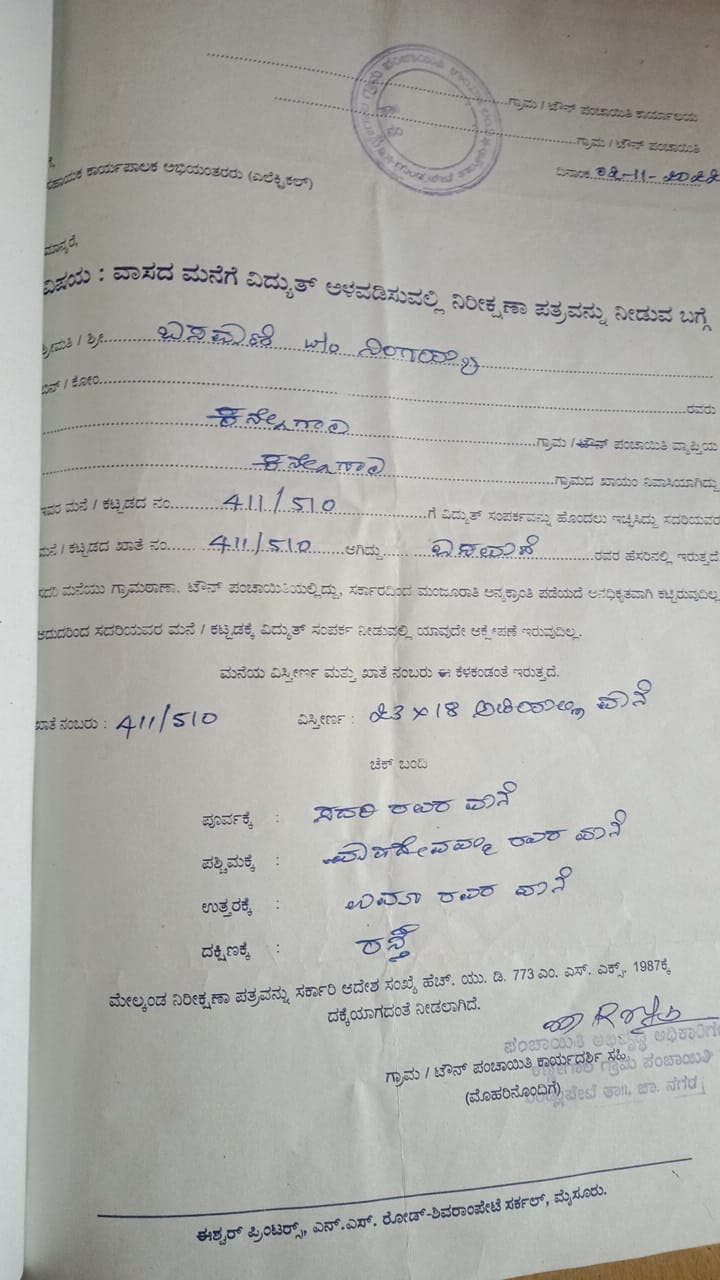 ಗ್ರಾಮ / ಟೌನ್ ಪಂಚಾಯಿತಿ ಕಾರ್ಯಾಲಯ
ಗ್ರಾಮ / ಟೌನ್ ಪಂಚಾಯಿತಿ
ದಿನಾಂಕ
ಸಹಾಯಕ ಕಾರ್ಯಪಾಲಕ ಅಭಿಯಂತರರು (ಎಲೆಕ್ಟ್ರಿಕಲ್)
ಮಾನ್ಯರೆ,
ವಿಷಯ : ವಾಸದ ಮನೆಗೆ ವಿದ್ಯುತ್ ಅಳವಡಿಸುವಲ್ಲಿ ನಿರೀಕ್ಷಣಾ ಪತ್ರವನ್ನು ನೀಡುವ ಬಗ್ಗೆ
ಶ್ರೀಮತಿ / ಶ್ರೀ ಬಸಮಣಿ w/o ನಿಂಗಯ್ಯ
ಬಿನ್ / ಕೋಂ ರವರು
ಗ್ರಾಮ / ಟೌನ್ ಪಂಚಾಯಿತಿ ವ್ಯಾಪ್ತಿಯ
ಗ್ರಾಮದ ಖಾಯಂ ನಿವಾಸಿಯಾಗಿದ್ದು
ಇವರ ಮನೆ / ಕಟ್ಟಡದ ನಂ. 411/510 ಗೆ ವಿದ್ಯುತ್ ಸಂಪರ್ಕವನ್ನು ಹೊಂದಲು ಇಚ್ಛಿಸಿದ್ದು ಸದರಿಯವರ
ಮನೆ / ಕಟ್ಟಡದ ಖಾತೆ ನಂ. 411/510 ಆಗಿದ್ದು ಬಸಮಣಿ ರವರ ಹೆಸರಿನಲ್ಲಿ ಇರುತ್ತದೆ
ಸದರಿ ಮನೆಯು ಗ್ರಾಮಠಾಣಾ, ಟೌನ್ ಪಂಚಾಯಿತಿಯಲ್ಲಿದ್ದು, ಸರ್ಕಾರದಿಂದ ಮಂಜೂರಾತಿ ಅನ್ಯಕ್ರಾಂತಿ ಪಡೆಯದೆ ಅನಧಿಕೃತವಾಗಿ ಕಟ್ಟಿರುವುದಿಲ್ಲ
ಆದುದರಿಂದ ಸದರಿಯವರ ಮನೆ / ಕಟ್ಟಡಕ್ಕೆ ವಿದ್ಯುತ್ ಸಂಪರ್ಕ ನೀಡುವಲ್ಲಿ ಯಾವುದೇ ಆಕ್ಷೇಪಣೆ ಇರುವುದಿಲ್ಲ.
ಮನೆಯ ವಿಸ್ತೀರ್ಣ ಮತ್ತು ಖಾತೆ ನಂಬರು ಈ ಕೆಳಕಂಡಂತೆ ಇರುತ್ತದೆ.
ಖಾತೆ ನಂಬರು : 411/510 ವಿಸ್ತೀರ್ಣ : 23 x 18 ಮನೆ
ಚೆಕ್ ಬಂದಿ
ಪೂರ್ವಕ್ಕೆ : ಸದರಿ ರವರ ಮನೆ
ಪಶ್ಚಿಮಕ್ಕೆ : ಮಹದೇವಪ್ಪ ರವರ ಮನೆ
ಉತ್ತರಕ್ಕೆ : ಉಮಾ ರವರ ಮನೆ
ದಕ್ಷಿಣಕ್ಕೆ : ರಸ್ತೆ
ಮೇಲ್ಕಂಡ ನಿರೀಕ್ಷಣಾ ಪತ್ರವನ್ನು ಸರ್ಕಾರಿ ಆದೇಶ ಸಂಖ್ಯೆ ಹೆಚ್. ಯು. ಡಿ. 773 ಎಂ. ಎಸ್. ಎಕ್ಸ್. 1987ಕ್ಕೆ
ದಕ್ಕೆಯಾಗದಂತೆ ನೀಡಲಾಗಿದೆ.
ಪಂಚಾಯಿತಿ ಅಭಿವೃದ್ಧಿ ಅಧಿಕಾರಿಗಳು
ಗ್ರಾಮ / ಟೌನ್ ಪಂಚಾಯಿತಿ ಕಾರ್ಯದರ್ಶಿ ಸಹಿ
ಗ್ರಾಮ ಪಂಚಾಯಿತಿ
(ಮೊಹರಿನೊಂದಿಗೆ)
ತಾ||, ಚಾ. ನಗರ
ಈಶ್ವರ್ ಪ್ರಿಂಟರ್ಸ್, ಎನ್.ಎಸ್. ರೋಡ್-ಶಿವರಾಂಪೇಟೆ ಸರ್ಕಲ್, ಮೈಸೂರು.